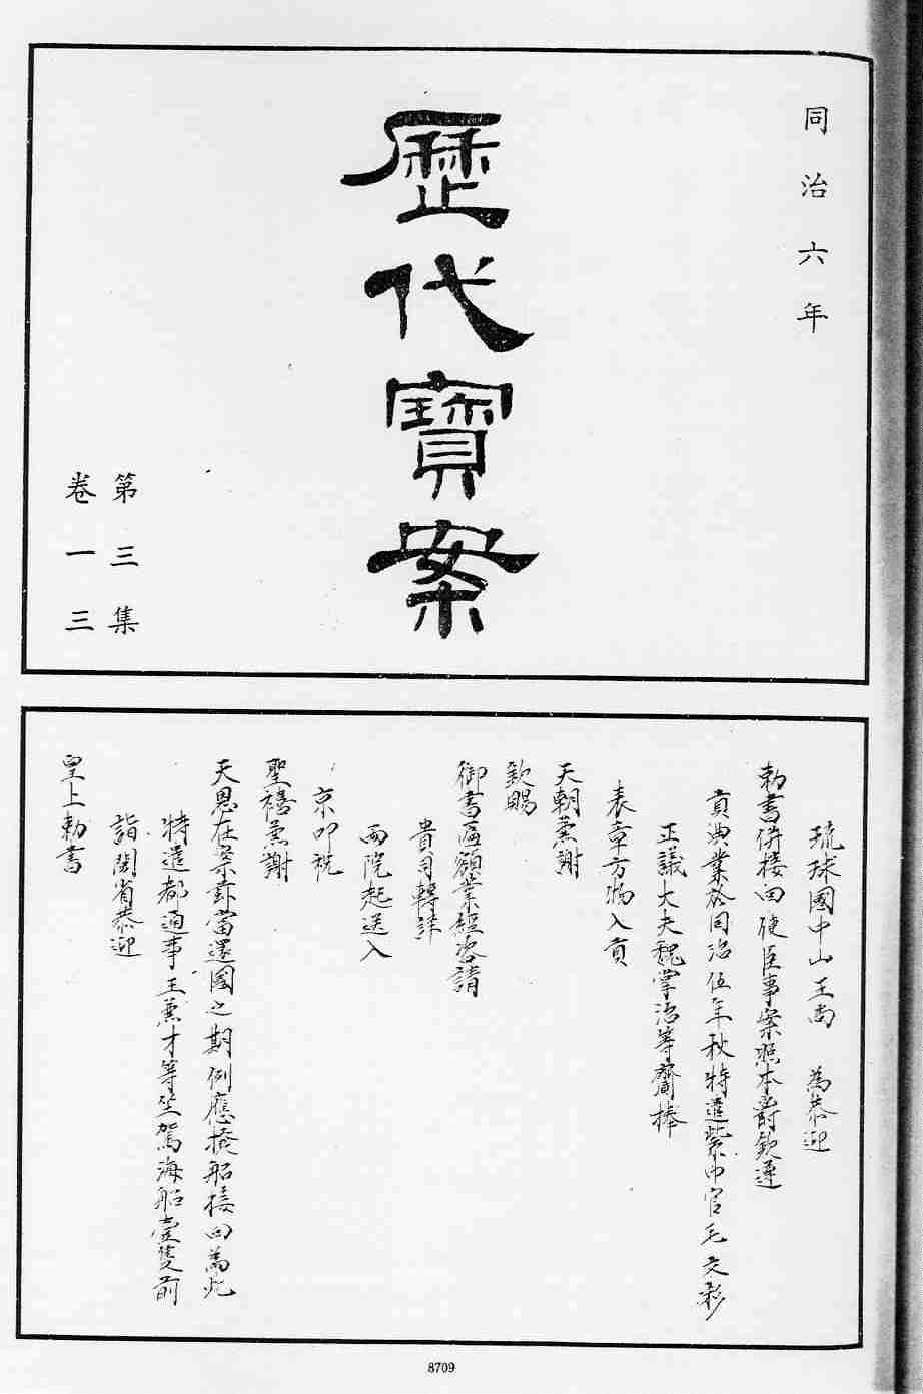 同治六年
歷代寶案
第三集
卷一三
琉球國中山王尚 為恭迎
勅書併接回使臣事案照本爵欽遵
貢典業於同治伍年秋特遣紫巾官毛文彩
正議大夫魏掌治等齎捧
表章方物入貢
天朝兼謝
欽賜
御書匾額業經咨請
貴司轉詳
兩院起送入
京叩祝
聖禧兼謝
天恩在案茲當還國之期例應撥船接回為此
特遣都通事王兼才等坐駕海船壹隻前
詣閩省恭迎
皇上勅書
8709